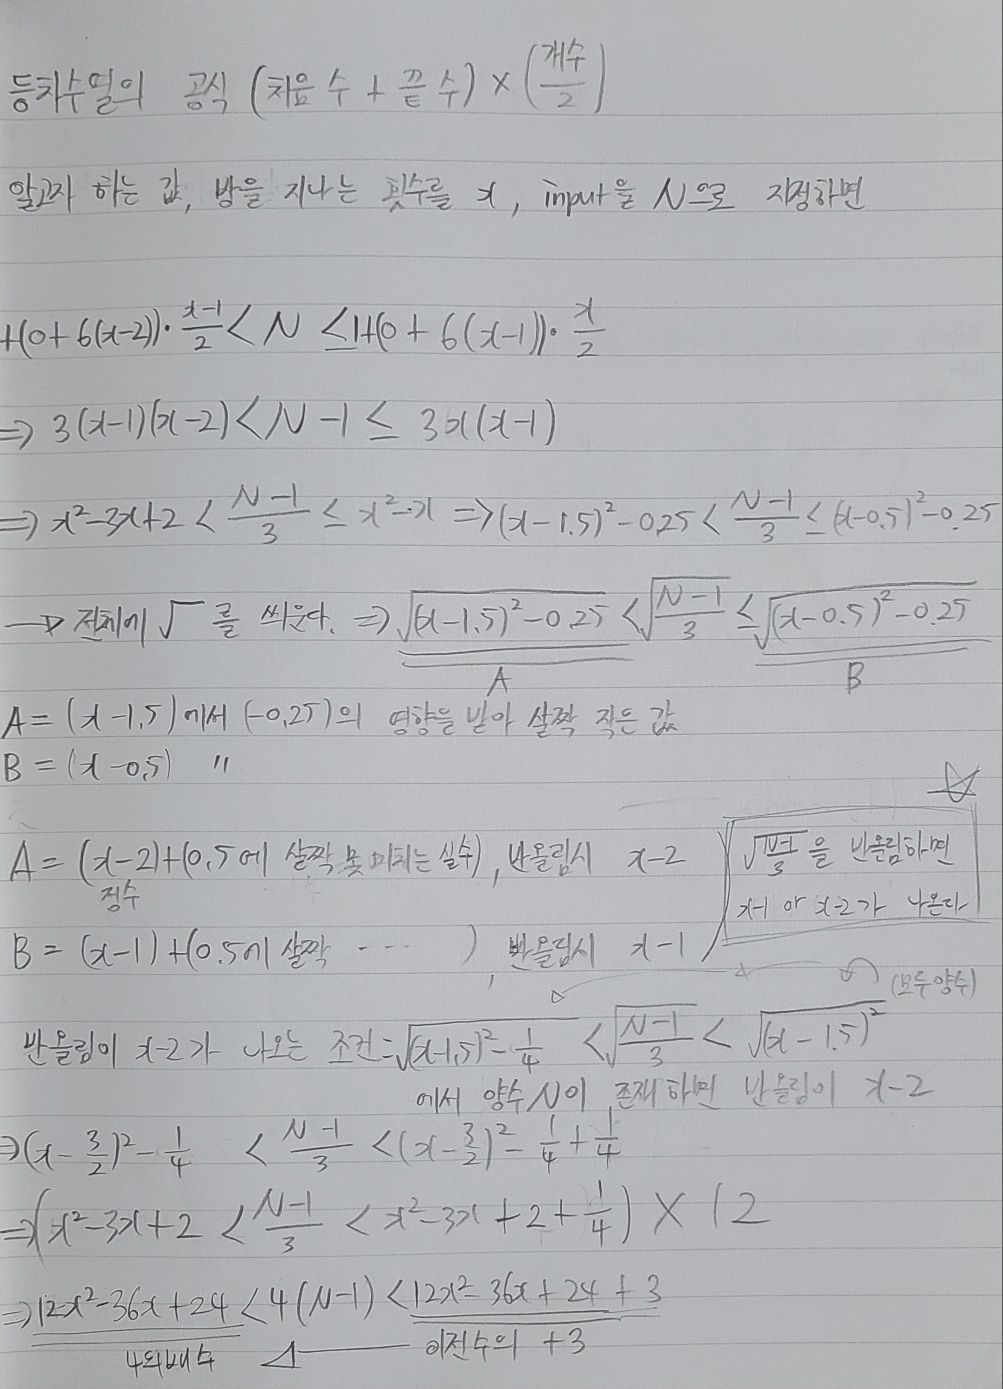 등차수열의 공식 (처음 수 + 끝 수) × (개수/2)
알고자 하는 값, 방을 지나는 횟수를 x, input을 N으로 지정하면
1+(0+6(x-2))·(x-1)/2 < N ≤ 1+(0+6(x-1))·x/2
⇒ 3(x-1)(x-2) < N-1 ≤ 3x(x-1)
⇒ x²-3x+2 < (N-1)/3 ≤ x²-x ⇒ (x-1.5)²-0.25 < (N-1)/3 ≤ (x-0.5)²-0.25
→ 전체에 √ 를 씌운다. ⇒ √((x-1.5)²-0.25) < √((N-1)/3) ≤ √((x-0.5)²-0.25)
A B
A = (x-1.5)에서 (-0.25)의 영향을 받아 살짝 작은 값
B = (x-0.5) "
A = (x-2)+(0.5에 살짝 못 미치는 실수), 반올림시 x-2
정수
B = (x-1)+(0.5에 살짝 ---- ), 반올림시 x-1
√((N-1)/3)을 반올림하면
x-1 or x-2가 나온다
(모두양수)
반올림이 x-2가 나오는 조건=√((x-1.5)²-1/4) < √((N-1)/3) < √((x-1.5)²)
에서 양수 N이 존재하면 반올림이 x-2
⇒ (x-3/2)²-1/4 < (N-1)/3 < (x-3/2)²-1/4+1/4
⇒ (x²-3x+2 < (N-1)/3 < x²-3x+2+1/4) × 12
⇒ 12x²-36x+24 < 4(N-1) < 12x²-36x+24+3
4의배수 이전수의 +3